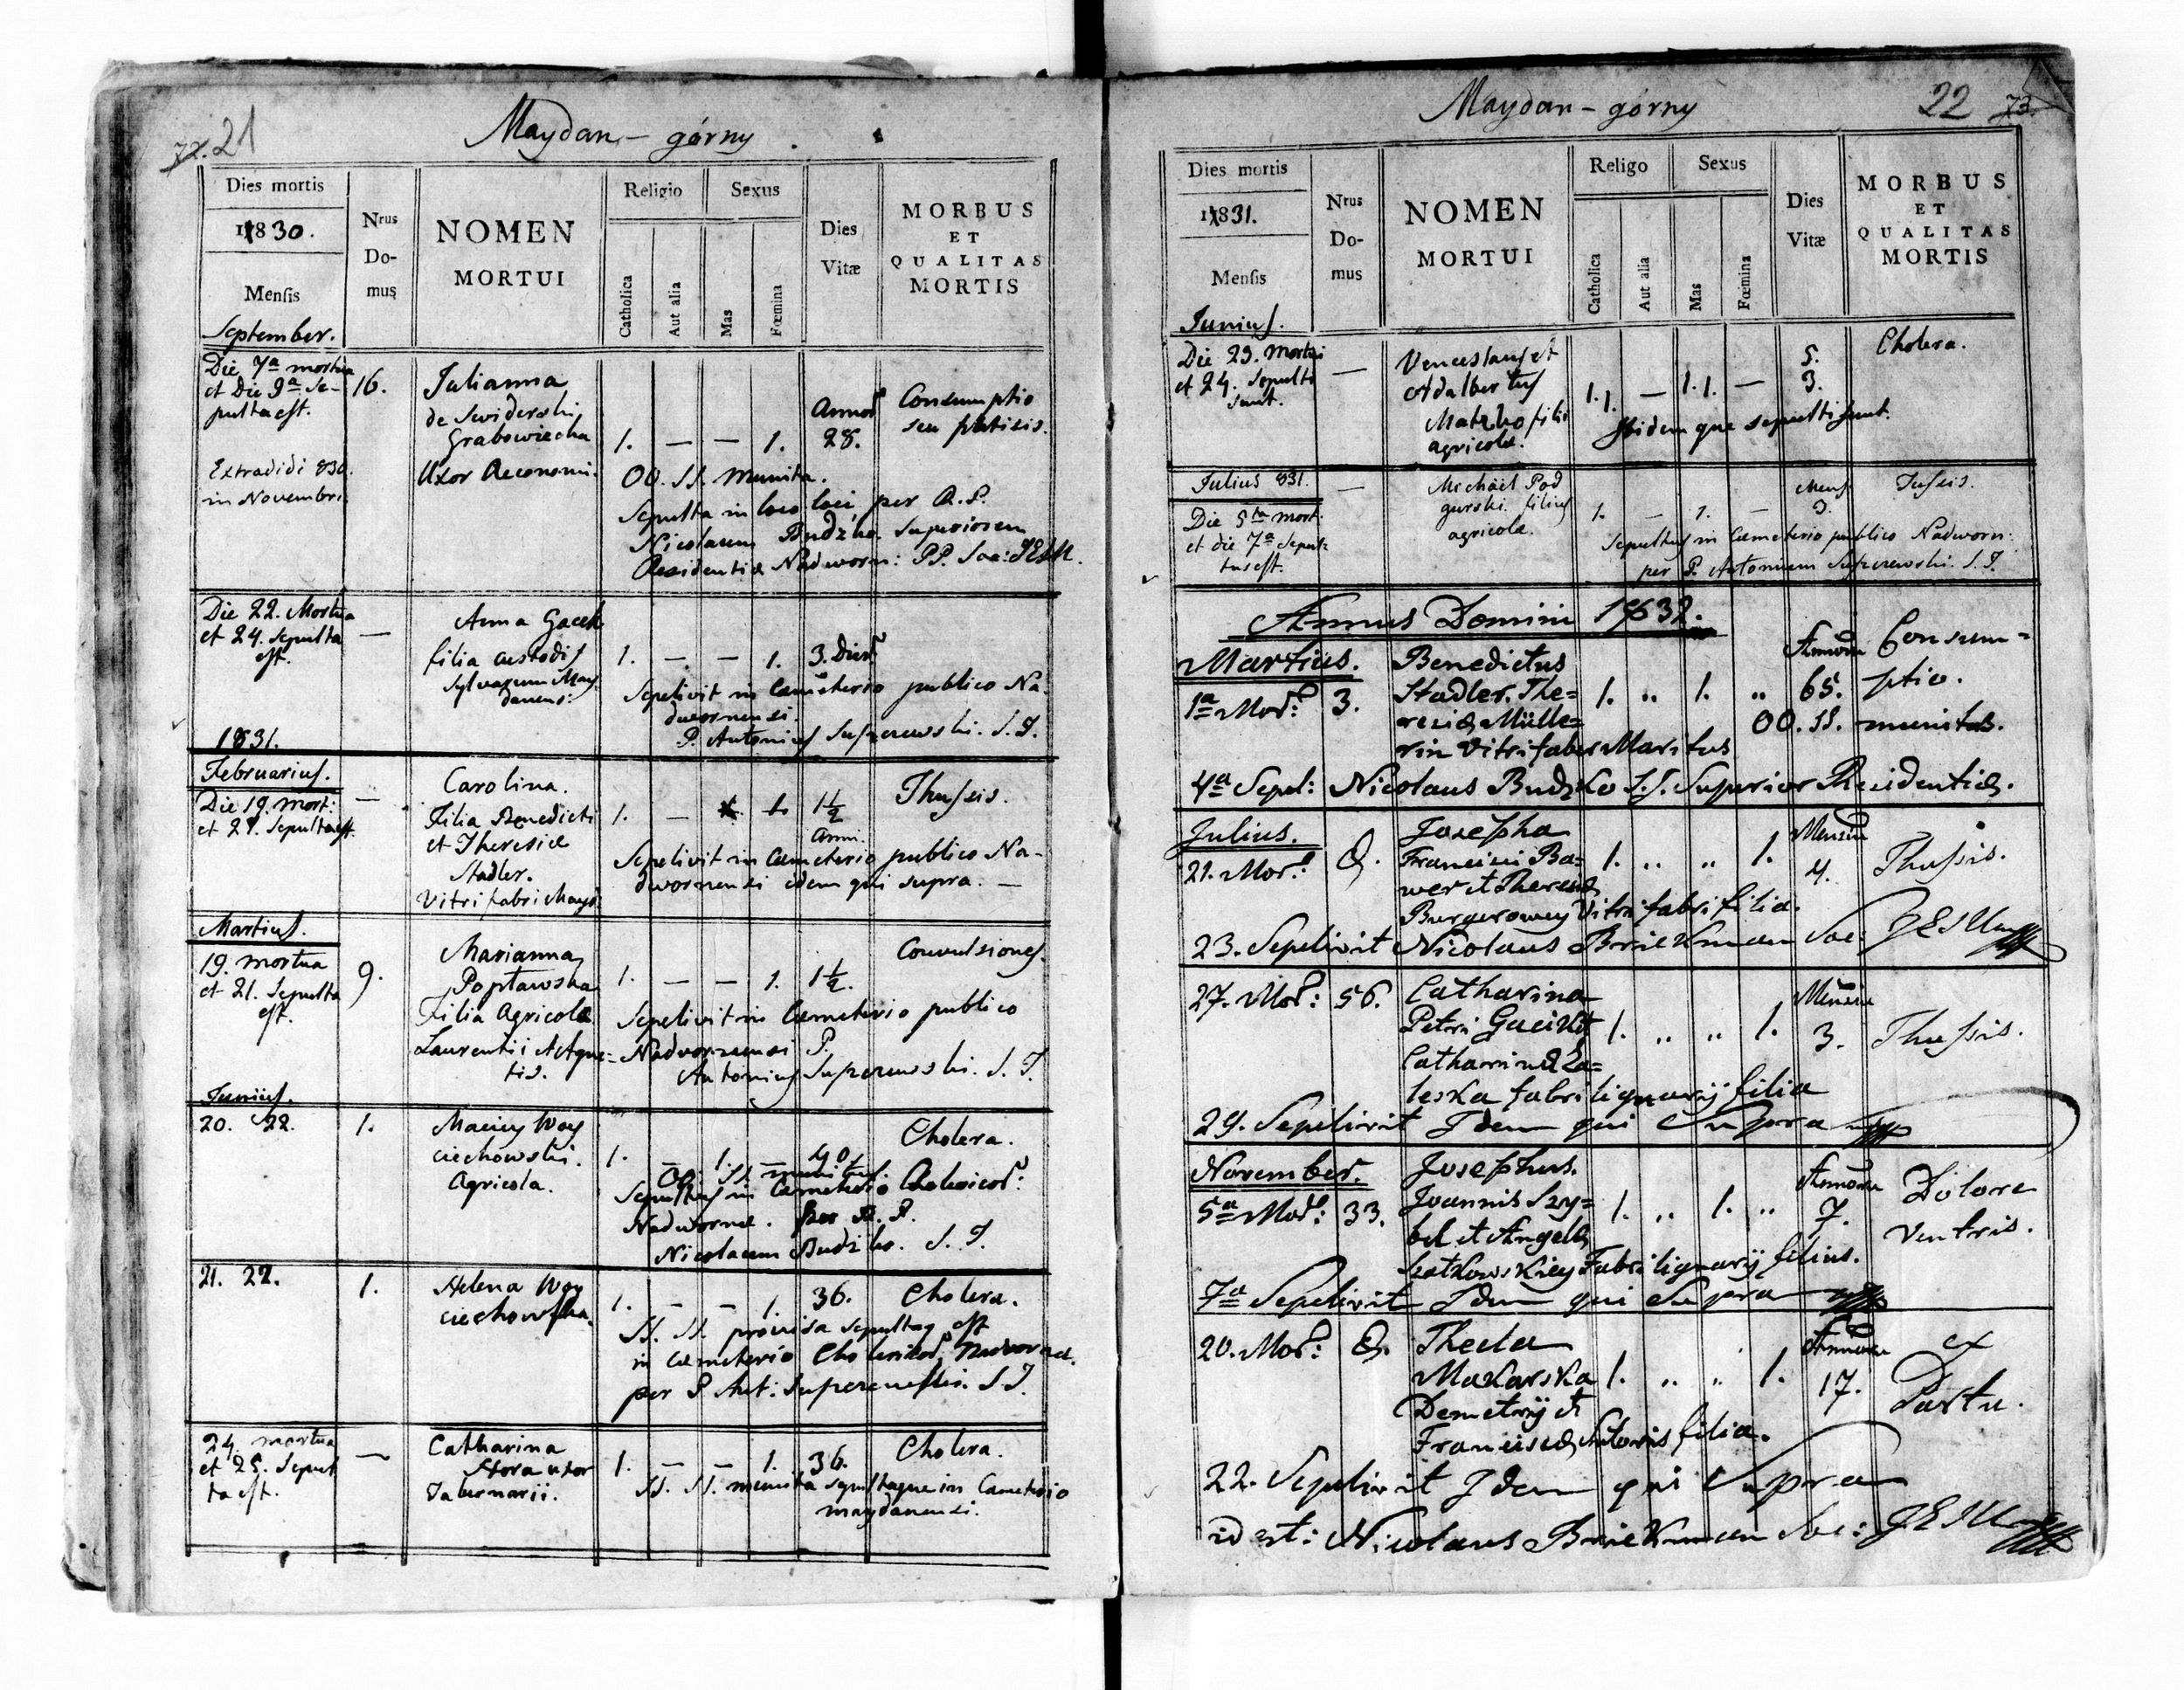 72. 21
Maydan – górny
Dies mortis
1830.
Mensis
September.
Nrus
Do-
mus
NOMEN
MORTUI
Religio
Catholica
Aut alia
Sexus
Mas
Fœmina
Dies
Vitæ
MORBUS
ET
QUALITAS
MORTIS
Die 7a mortua
et Die 9a Se-
pulta est.
16.
Julianna
de Swiderski
Grabowiecka
Uxor Oeconomi.
1. — — 1.
Annor
28.
Consumptio
seu phtisis.
Extradidi 830.
in Novembri.
OO. SS. munita.
Sepulta in loco loci, per R. P.
Nicolaum Budzko Superiorem
Residentiæ Nadworn: PP. Soc: JESU.
Die 22. Mortua
et 24. Sepulta
est.
—
Anna Gacek
filia custodis
Sylvarum May
danens:
1. — — 1. 3. Dier
Sepelivit in Cæmeterio publico Na-
dwornensi.
P. Antonius Suprzewski. S. J.
1831.
Februarius.
Die 19. mort:
et 21. Sepulta est.
—
Carolina.
Filia Benedicti
et Theresiæ
Stadler.
Vitri fabri Mayd:
1. — 1. 1½
Anni.
Thussis.
Sepelivit in Cæmeterio publico Na-
dwornensi idem qui supra. —
Martius.
19. mortua
et 21. Sepulta
est.
9.
Marianna
Popławska
Filia Agricolæ
Laurentii et Agne-
tis.
1. — — 1. 1½.
Convulsiones.
Sepelivit in Cæmeterio publico
Nadwornensi P.
Antonius Suprzewski. S. J.
Junius.
20. 22.
1.
Maciey Woy
ciechowski.
Agricola.
1. — 1. — 40.
Cholera.
OO. SS. munitus.
Sepultus in Cæmeterio Cholericor:
Nadwornæ. per R. P.
Nicolaum Budzko. S. J.
21. 22.
1.
Helena Woy
ciechowska.
1. — — 1. 36.
Cholera.
SS. SS. provisa sepultaq est
in Cæmeterio Cholericor: Nadwornæ.
per P. Ant: Suprzewski. S J.
24. mortua
et 25. Sepul
ta est.
—
Catharina
uxor
Tabernarii.
1. — — 1. 36.
Cholera.
SS. SS. munita sepultaque in Cæmeterio
maydanensi.
Maydan – górny
22 73.
Dies mortis
1831.
Mensis
Junius.
Nrus
Do-
mus
NOMEN
MORTUI
Religo
Catholica
Aut alia
Sexus
Mas
Fœmina
Dies
Vitæ
MORBUS
ET
QUALITAS
MORTIS
Die 23. Mortui
et 24. Sepulti
sunt.
—
Venceslaus et
Adalbertus
Matzko filii
agricolæ.
1. 1. — 1. 1. —
5.
3.
Cholera.
Ibidem que sepulti sunt.
Julius 831.
Die 5ta mort.
et die 7a Sepul-
tus est.
—
Michäel Pod
gurski filius
agricolæ.
1. — 1. —
Mens
3.
Tussis.
Sepultus in Cæmeterio publico Nadworn:
per P. Antonium Suprzewski. S. J.
Annus Domini 1832.
Martius.
1a Mor: 3.
Benedictus
Stadler. The=
resiæ Mülle=
rin Vitrifaber Maritus
1. „ 1. „
Annorum
65.
Consum=
ptio.
OO. SS. munitus.
4a Sepel: Nicolaus Budzko S. J. Superior Residentiæ.
Julius.
21. Mor:
Josepha
Francisci Ba=
wer et Theresiæ
Burgerowey Vitri fabri filia.
1. „ „ 1.
Mensium
4.
Thussis.
23. Sepelivit Nicolaus Brickman Soc: JESU
27. Mor: 56.
Catharina
Petri et
Catharinæ Za=
leska fabri lignarij filia
1. „ „ 1.
Mensium
3.
Thussis.
29. Sepelivit Idem qui Supra
November.
5a Mor: 33.
Josephus.
Joannis Szy=
bel et Angelæ
Szatkowskiey Fabri lignarij filius.
1. „ 1. „
Annorum
7.
Dolore
Ventris.
7a Sepelivit Idem qui Supra
20. Mor:
Thecla
Makarska
Demetrij et
Franciscæ Sutoris filia.
1. „ „ 1.
Annorum
17.
ex
Partu.
22. Sepelivit Idem qui Supra
id est: Nicolaus Brickman Soc: JESU